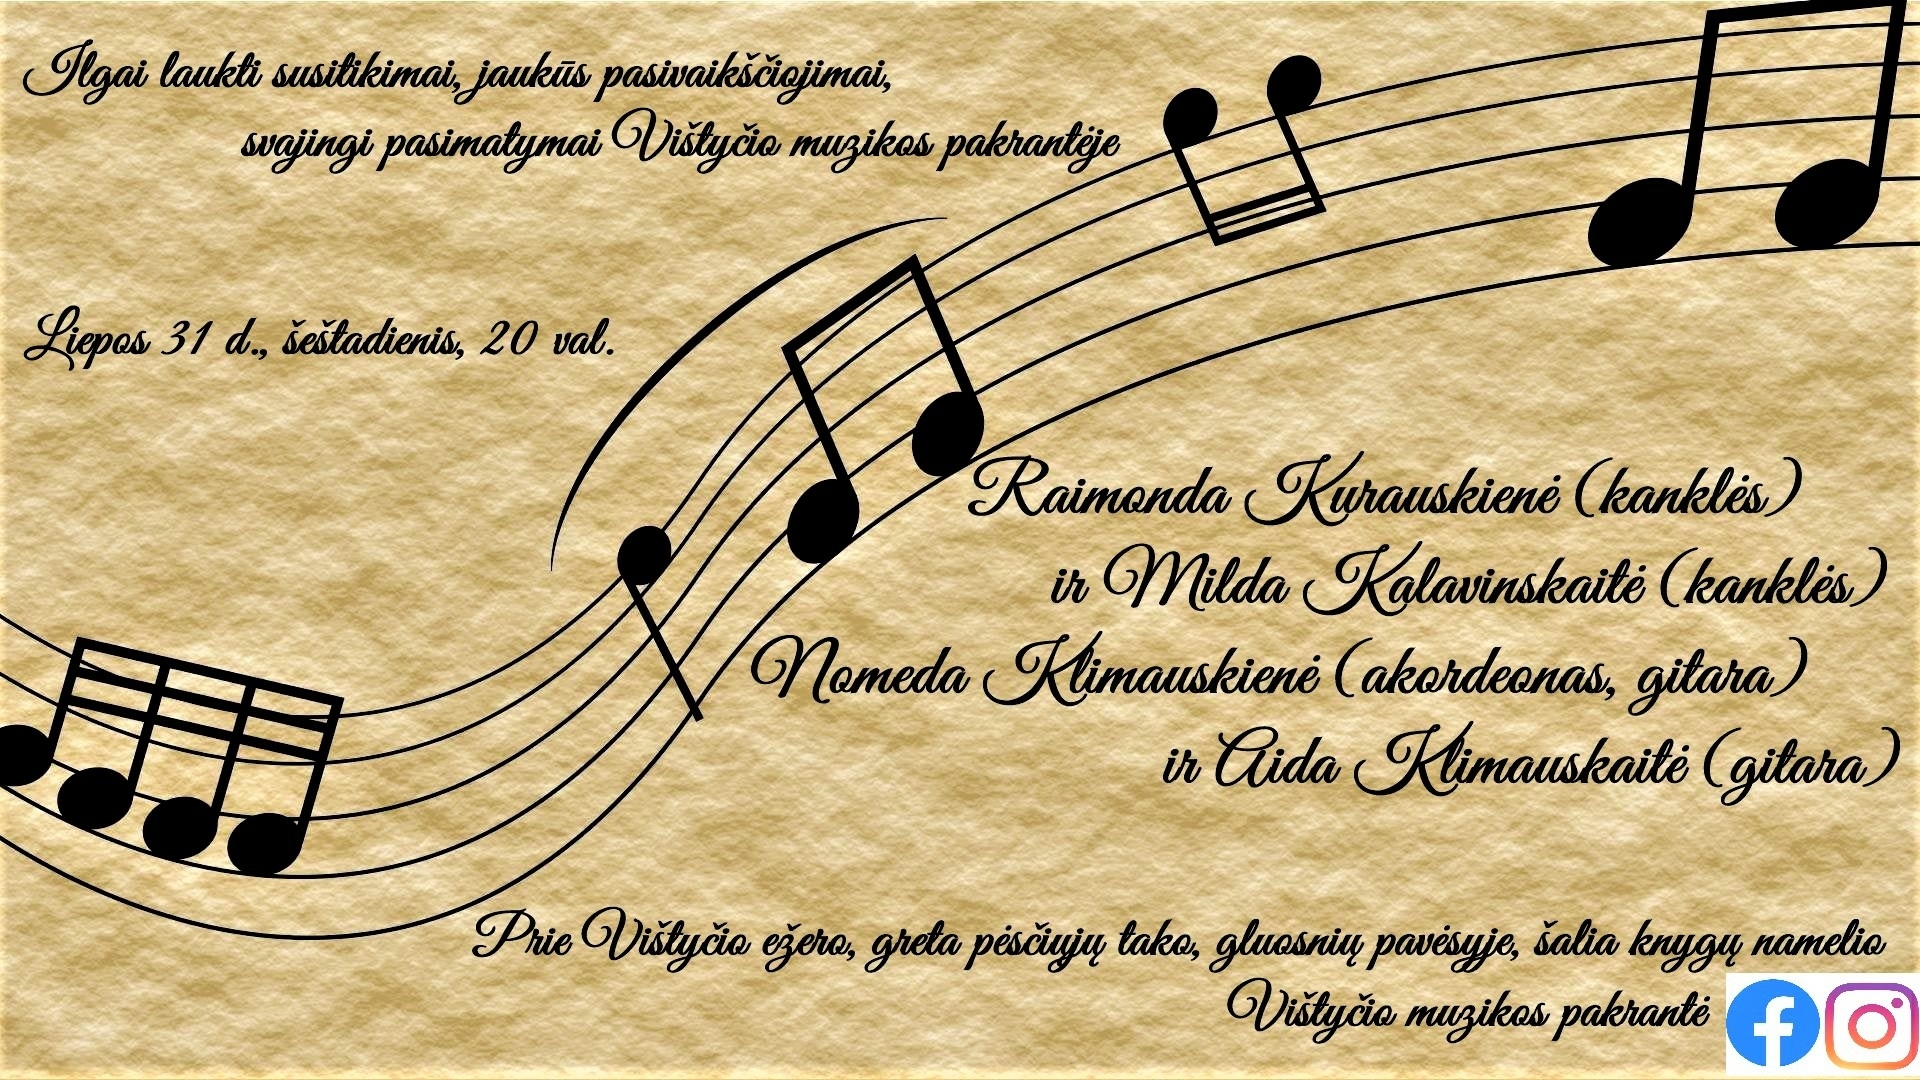 Ilgai laukti susitikimai, jaukūs pasivaikščiojimai,
svajingi pasimatymai Vištyčio muzikos pakrantėje
Liepos 31 d., šeštadienis, 20 val.
Raimonda Kurauskienė (kanklės)
ir Milda Kalavinskaitė (kanklės)
Nomeda Klimauskienė (akordeonas, gitara)
ir Aida Klimauskaitė (gitara)
Prie Vištyčio ežero, greta pėsčiųjų tako, gluosnių pavėsyje, šalia knygų namelio
Vištyčio muzikos pakrantė